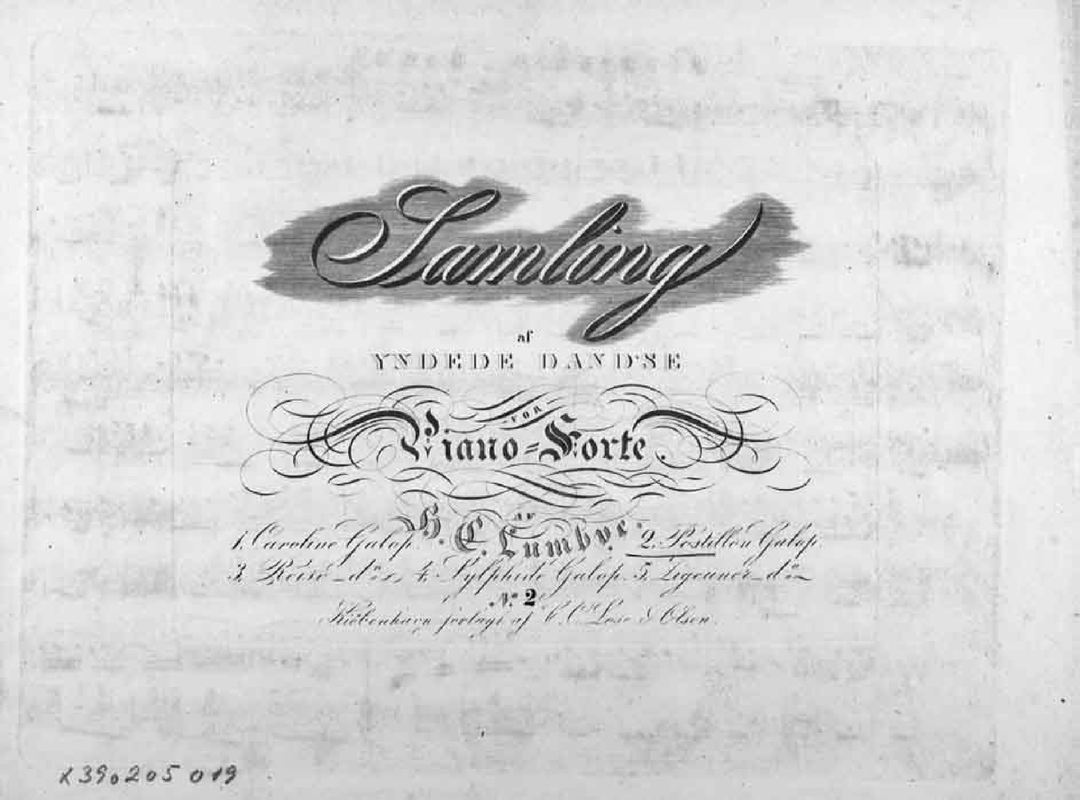 Samling
af
YNDEDE DANDSE
FOR
Piano=Forte.
af
H. C. Lumbye.
1. Caroline Galop. 2. Postillon Galop.
3. Reise_do 4. Sylphide Galop. 5. Zigeuner_do
No. 2
Kiöbenhavn forlagt af C. C. Lose & Olsen.
x390205019